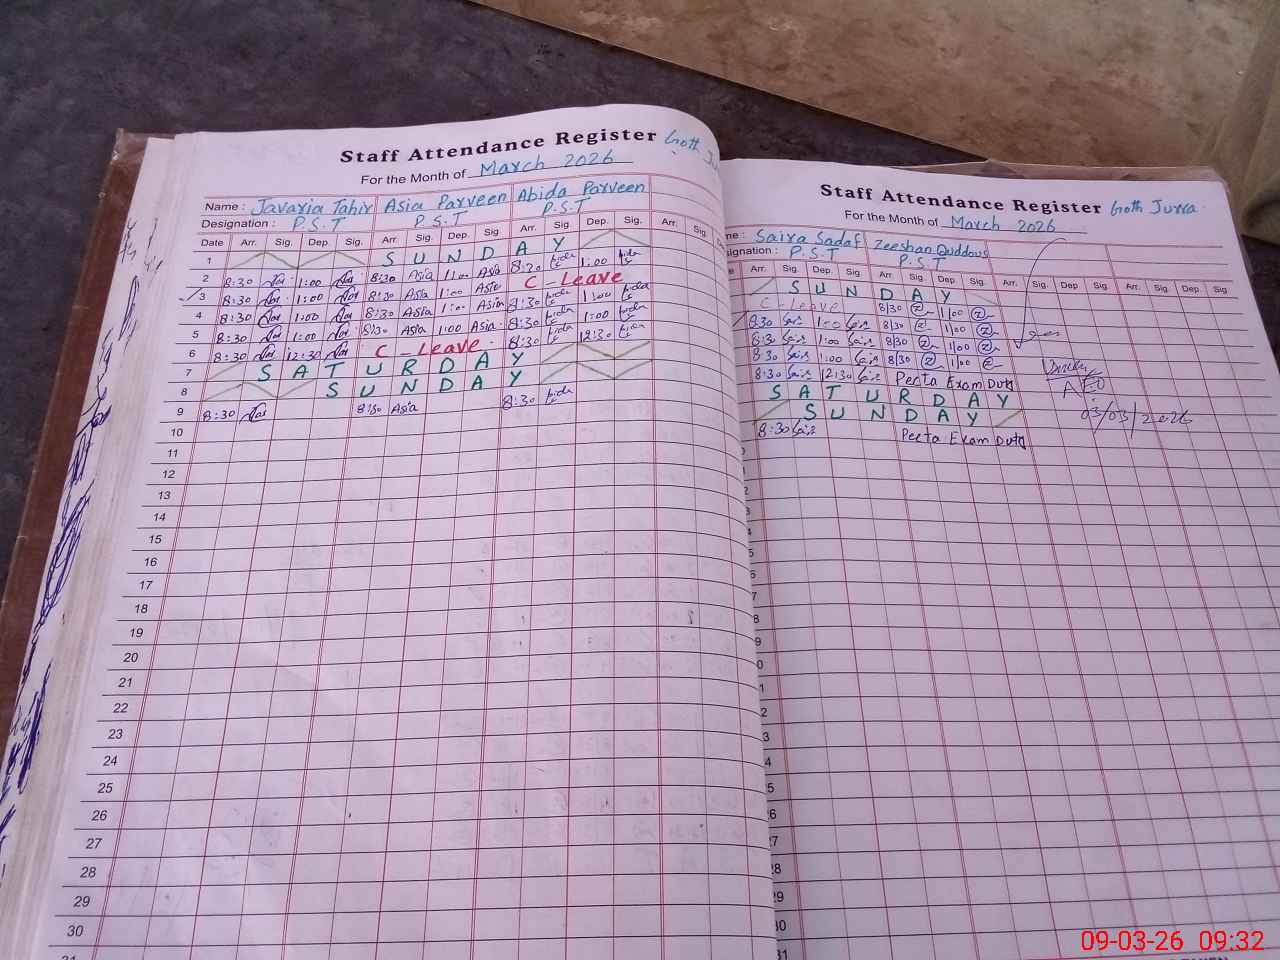 Staff Attendance Register Goth
For the Month of March 2026
Name : Javaria Tahir Asia Parveen Abida Parveen
Designation : P.S.T P.S.T P.S.T
Date Arr. Sig. Dep. Sig. Arr. Sig. Dep. Sig. Arr. Sig. Dep. Sig. Arr. Sig.
1 SUNDAY
2 8:30 1:00 8:30 Asia 1:00 Asia 8:30 1:00
3 8:30 1:00 8:30 Asia 1:00 Asia C-Leave
4 8:30 1:00 8:30 Asia 1:00 Asia 8:30 1:00
5 8:30 1:00 8:30 Asia 1:00 Asia 8:30 1:00
6 8:30 12:30 C-Leave 8:30 12:30
7 SATURDAY
8 SUNDAY
9 8:30 8:30 Asia 8:30
10
11
12
13
14
15
16
17
18
19
20
21
22
23
24
25
26
27
28
29
30
31
Staff Attendance Register Goth Jurra
For the Month of March 2026
Saira Sadaf Zeeshan Quddous
P.S.T P.S.T
Arr. Sig. Dep. Sig. Arr. Sig. Dep. Sig. Arr. Sig. Dep. Sig. Arr. Sig. Dep. Sig.
SUNDAY
C-Leave 8/30 1/00
8:30 1:00 8/30 1/00
8:30 1:00 8/30 1/00
8:30 1:00 8/30 1/00
8:30 12:30 Peeta Exam Duty
SATURDAY
SUNDAY
8:30 Peeta Exam Duty
AEO
03/03/2026
09-03-26 09:32